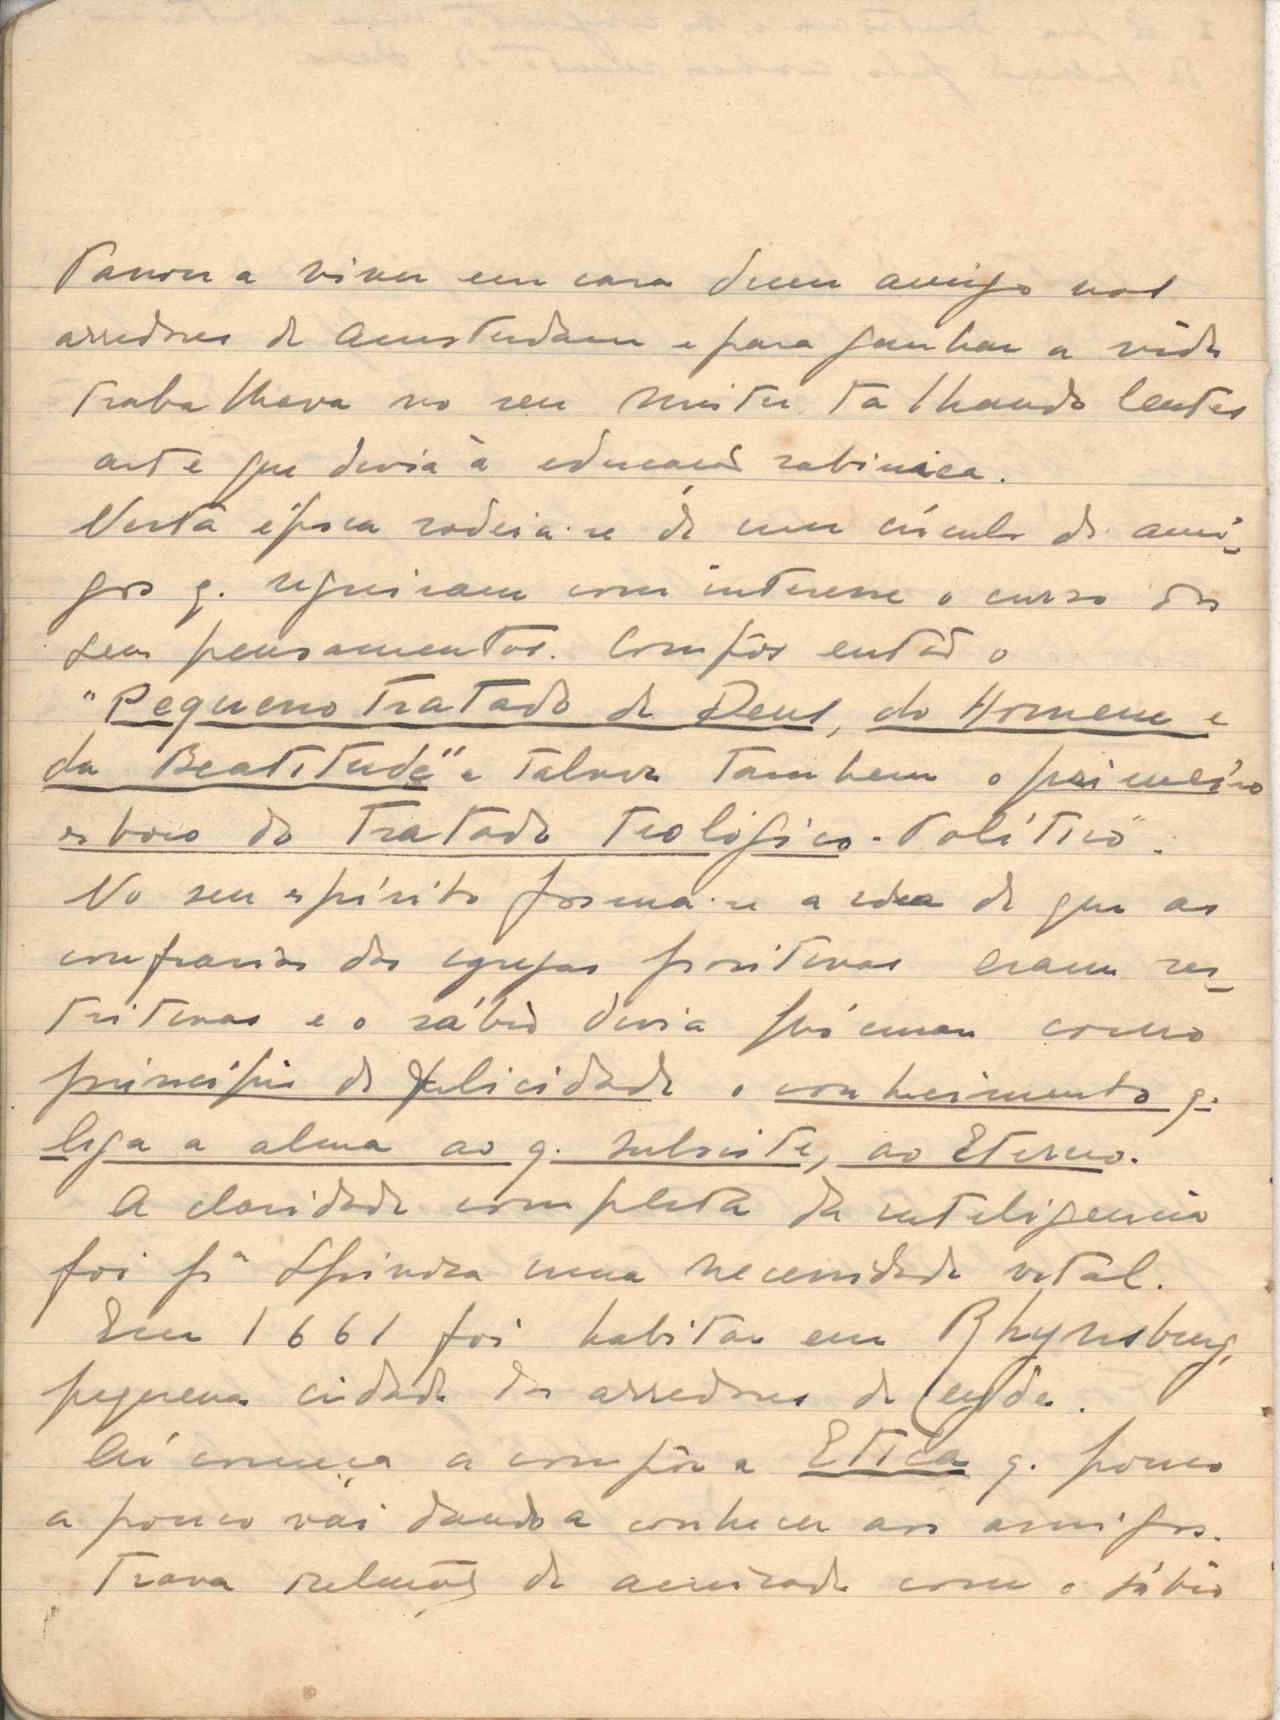 Passou a viver em casa dum amigo nos
arredores de Amsterdam e para ganhar a vida
trabalhava no seu mister talhando lentes
arte que devia à educação rabinica.
Nesta época rodeia-se de um círculo de ami-
gos q. seguiram com interesse o curso dos
seus pensamentos. Compôs então o
"Pequeno Tratado de Deus, do Homem e
da Beatitude" e talvez tambem o primeiro
esboco do Tratado Teológico-Político".
No seu espírito forma-se a idea de que as
confrarias das egrejas positivas eram res-
tritivas e o sábio devia procurar como
princípio de felicidade o conhecimento q.
liga a alma ao q. subsiste, ao Eterno.
A claridade completa da inteligencia
foi pª Spinoza uma necessidade vital.
Em 1661 foi habitar em Rhynsburg,
pequena cidade dos arredores de Leyde.
Aí começa a compôr a Etica q. pouco
a pouco vai dando a conhecer aos amigos.
Trava relações de amizade com o sábio